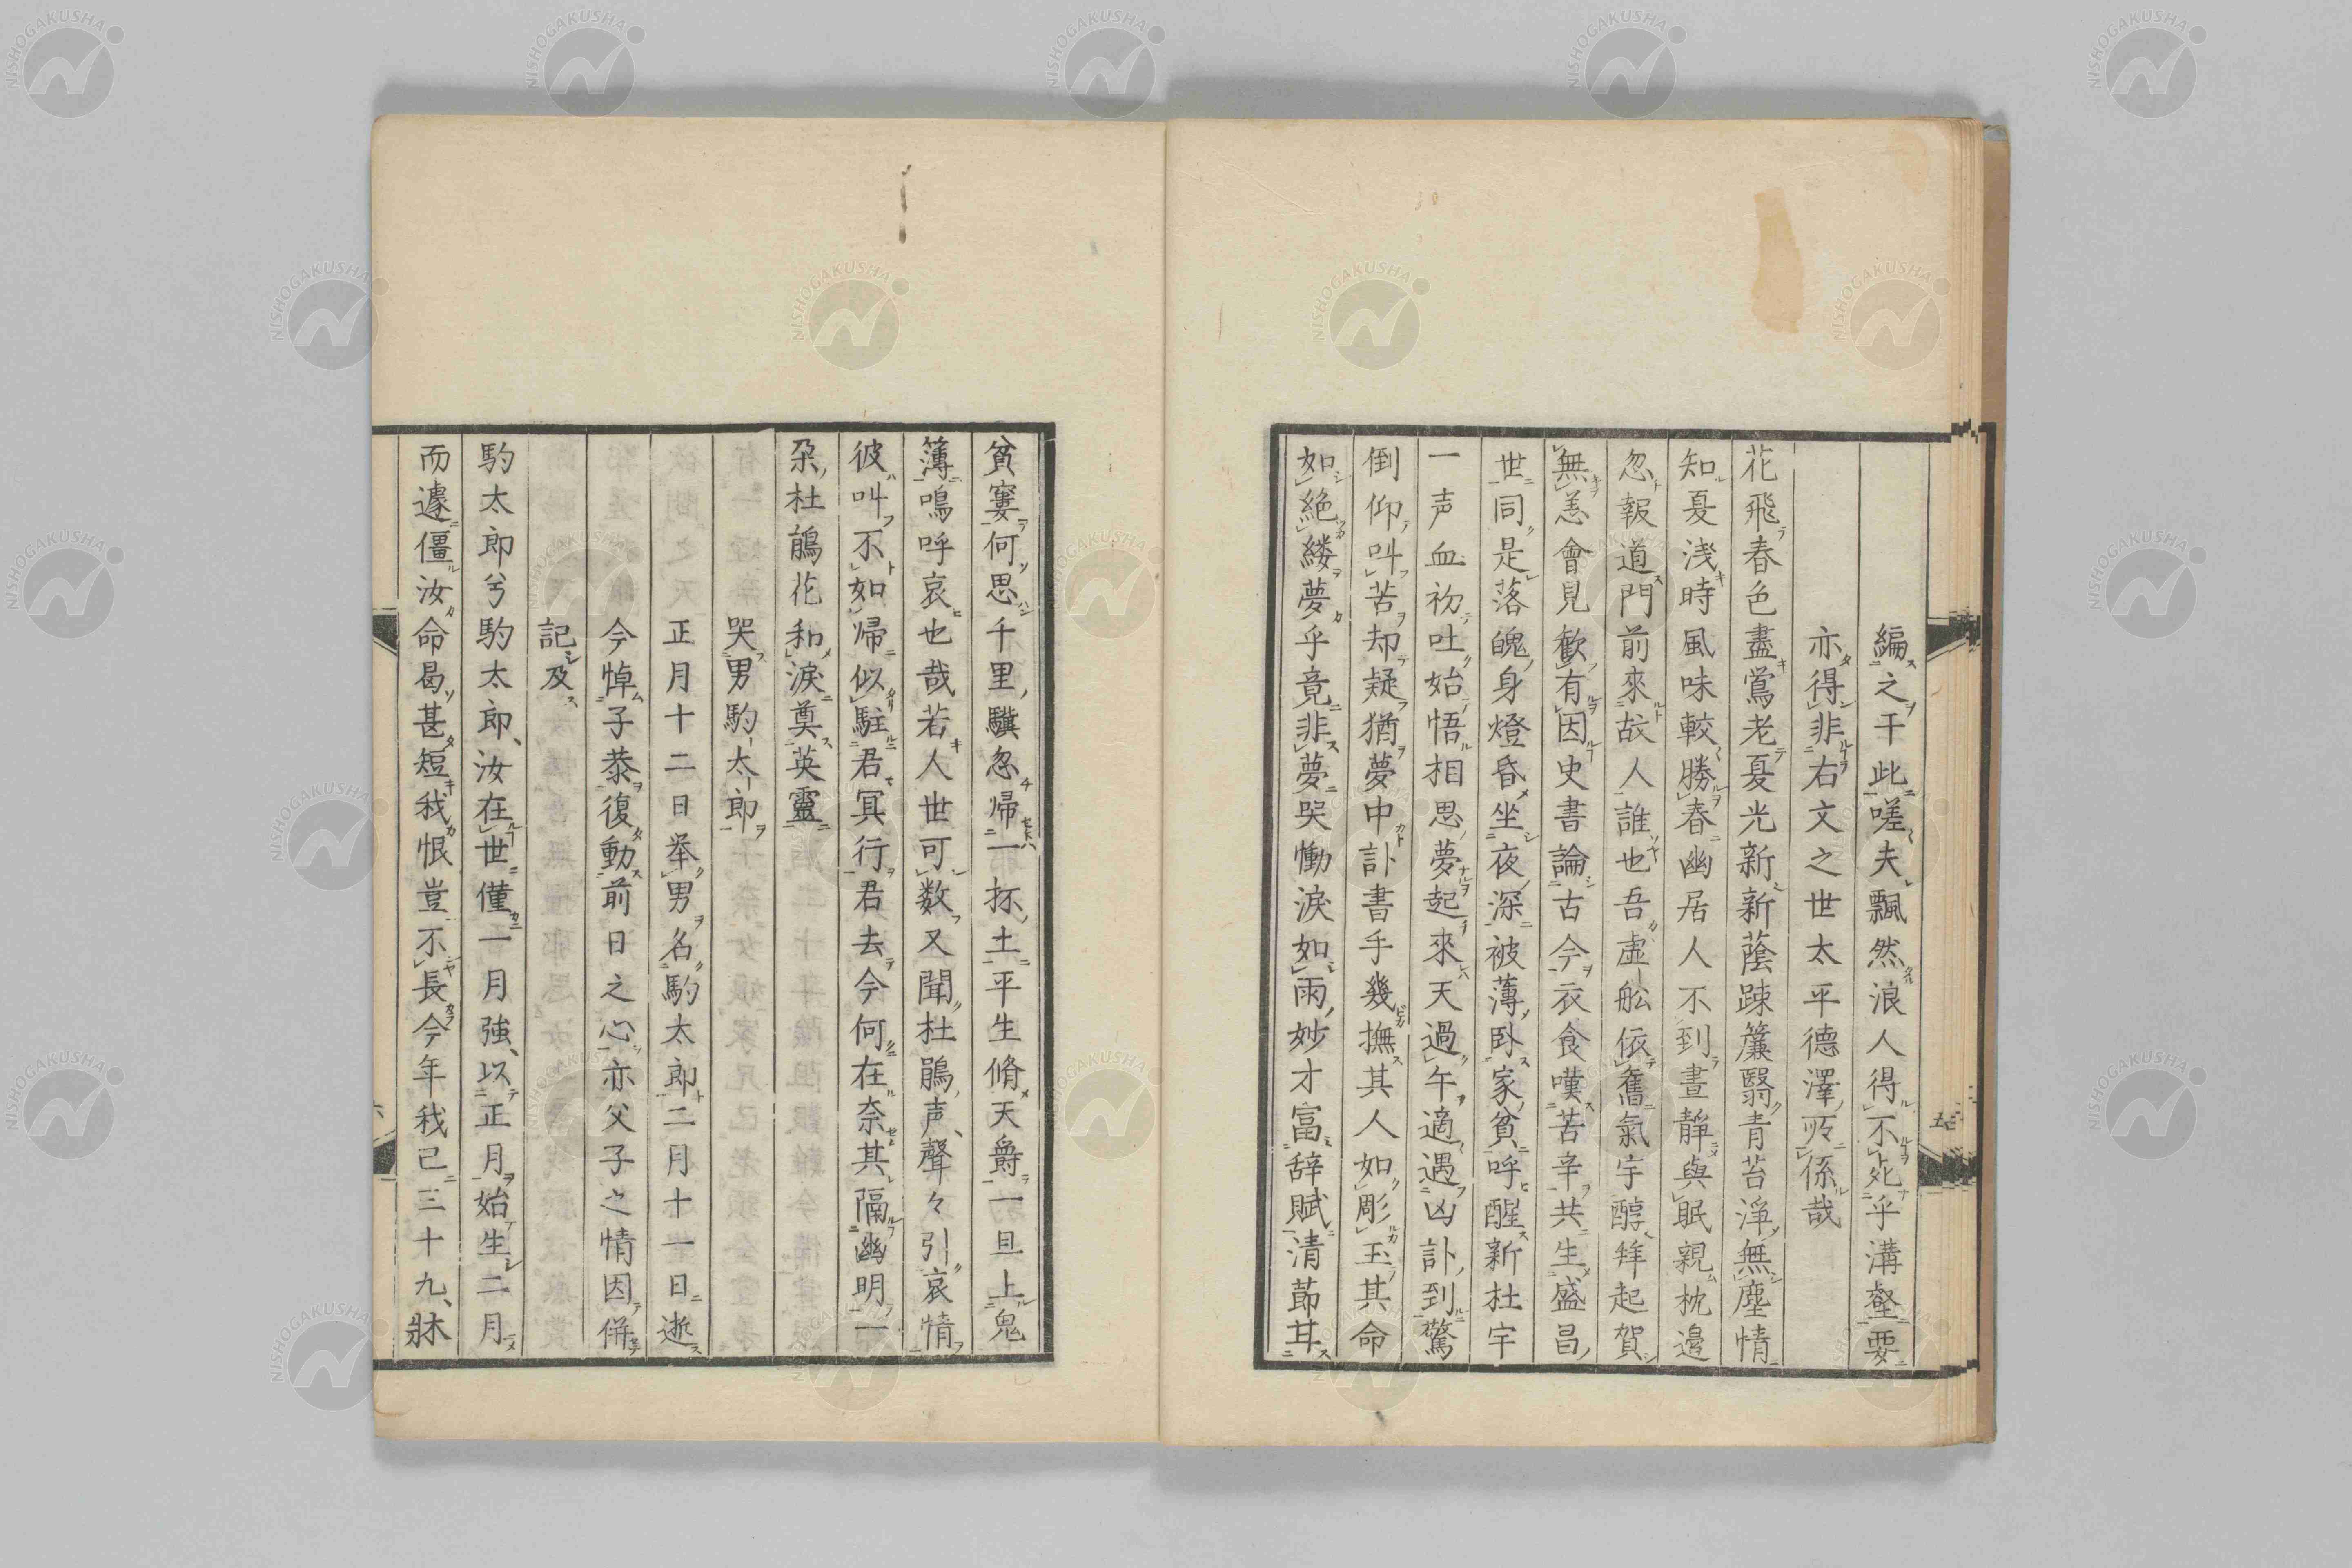 編之于此嗟夫飄然浪人得不死乎溝壑要
亦得非右文之世太平德澤所係哉
花飛春色盡鴬老夏光新新蔭踈簾翳青苔淨無塵情
知夏浅時風味較勝春幽居人不到晝静與眠親枕邊
忽報道門前來故人誰也吾虚舩依舊氣宇醇拜起賀
無恙會見歓有因史書論古今衣食嘆苦辛共生盛昌
世同是落魄身燈昏坐夜深被薄卧家貧呼醒新杜宇
一声血初吐始悟相思夢起來天過午適遇凶訃到驚
倒仰叫苦却疑猶夢中訃書手幾撫其人如彫玉其命
如絕縷夢乎竟非夢哭慟淚如雨妙才富辞賦清莭甘
貧窶何思千里驥忽帰一抔土平生脩天爵一旦上鬼
簿嗚呼哀也哉若人世可数又聞杜鵑声聲々引哀情
彼叫不如帰似駐君冥行君去今何在奈其隔幽明一
朶杜鵑花和淚奠英靈
哭男駒太郎
正月十二日举男名駒太郎二月十一日逝
今悼子恭復動前日之心亦父子之情因併
記及
駒太郎兮駒太郎汝在世僅一月強以正月始生二月
而遽僵汝命曷甚短我恨豈不長今年我已三十九牀
五
六
NISHOGAKUSHA